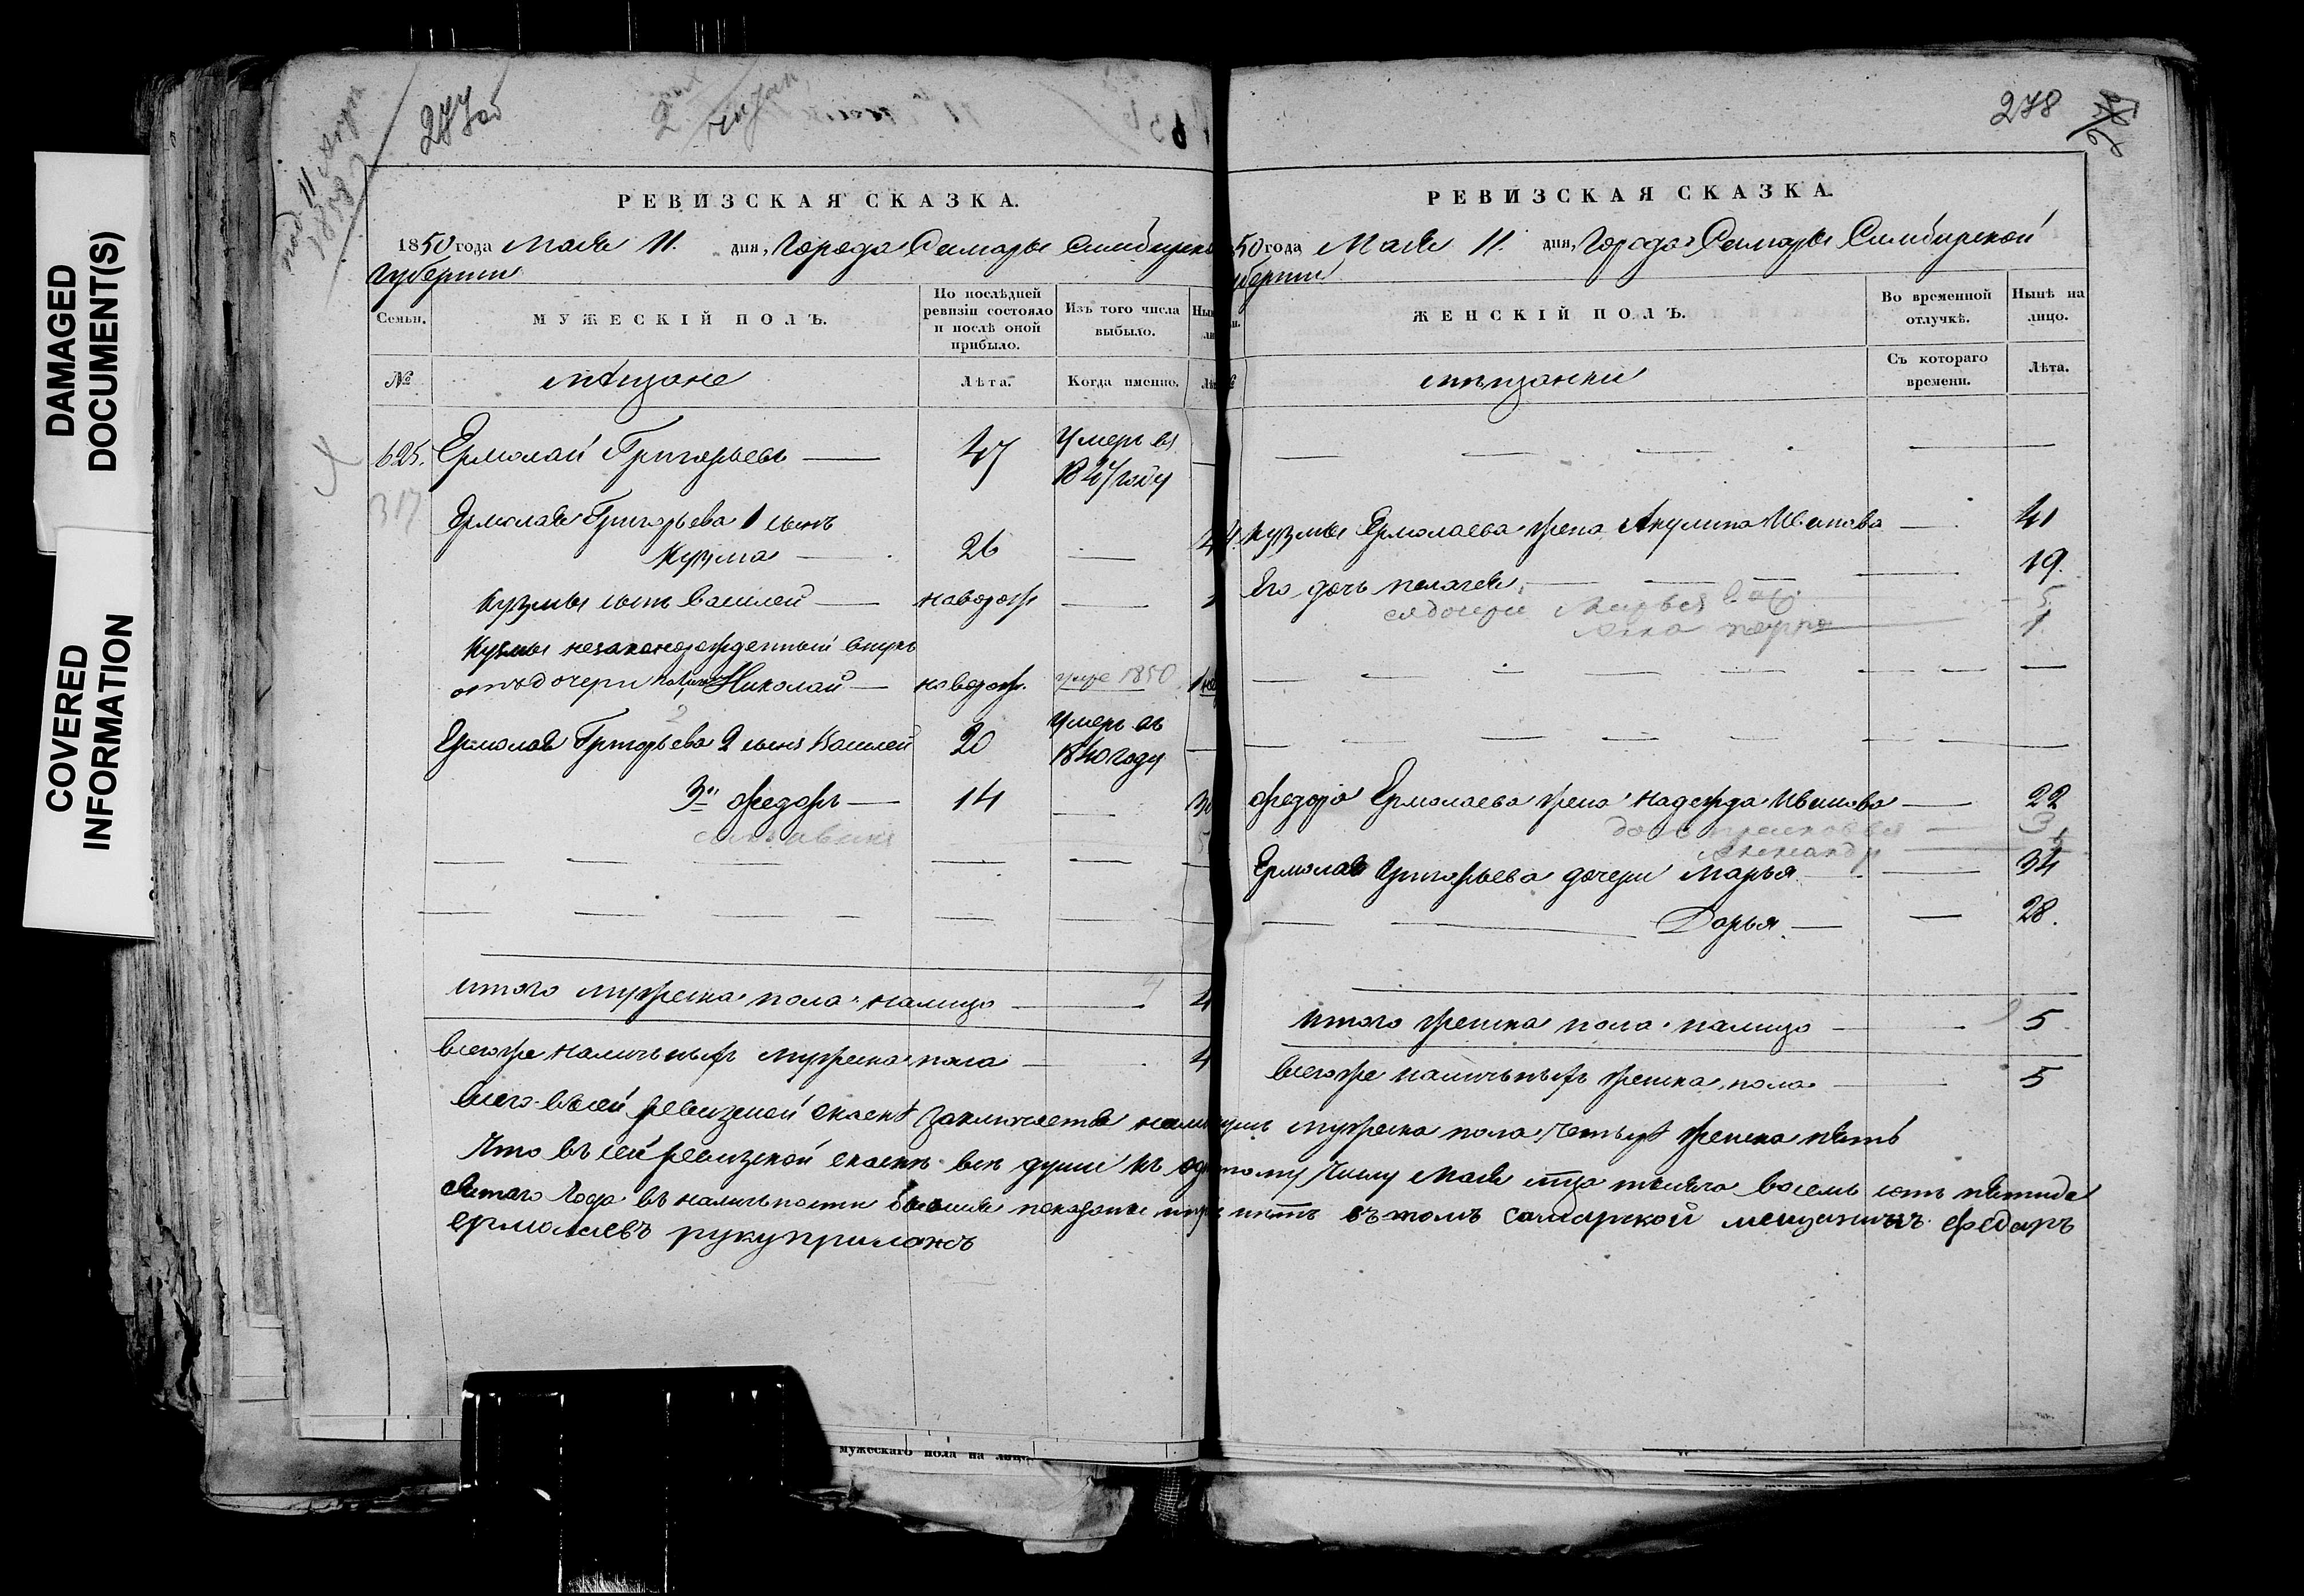 DAMAGED
DOCUMENT(S)
COVERED
INFORMATION
277об
РЕВИЗСКАЯ СКАЗКА.
1850 года Маія 11. дня, Города Самары Симбирско
губерніи
Семьи. МУЖЕСКІЙ ПОЛЪ. По послѣдней ревизіи состояло и послѣ оной прибыло. Изъ того числа выбыло.
№ мѣщане Лѣта. Когда именно.
625. Ермолай Григорьевъ — 47 Умеръ въ
1847 году
317
Ермолая Григорьева 1 сынъ
Кузма — 26 —
Кузмы сынъ Василей — новорож —
Кузмы незаконорожденный внукъ
отъ дочери Николай — новорож. умре 1850
Ермолая Григорьева 2 сынъ Василей 20 Умеръ въ
1840 году
3й Федоръ — 14 —
итого мужеска пола налицо — 4
всегоже наличныхъ мужеска пола — 4
мужескаго пола на лицо
278
РЕВИЗСКАЯ СКАЗКА.
50 года Маія 11. дня, Города Самары Симбирской
уберніи
ЖЕНСКІЙ ПОЛЪ. Во временной отлучкѣ. Нынѣ на лицо.
мѣщанки Съ котораго времени. Лѣта.
Кузмы Ермолаева жена Акулина Иванова — 41
Его дочь Пелагея — 19.
ея дочери Марья 5
Анна 1
Федора Ермолаева жена Надежда Иванова — 22
дочь 3
Ермолая Григорьева дочери Марья — 34
Дарья — 28.
итого женска пола налицо — 5
всегоже наличныхъ женска пола — 5
Всего в сей ревизской сказкѣ заключается налицо мужеска пола четыре женска пять
Что въ сей ревизской сказкѣ все души къ одиннатому числу Маія тысяча восемь сотъ пятиде
сятаго года въ наличности показаны въ томъ самарской мещанинъ Федаръ
ермолаевъ руку приложъ